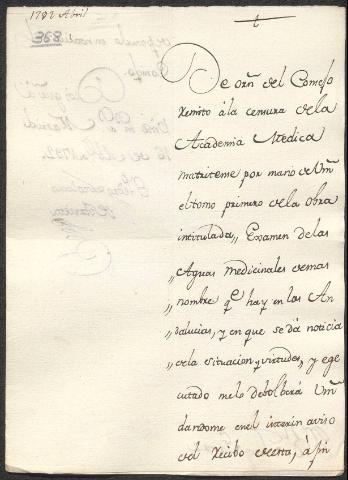 1792 Abril
De orñ del Consejo
remito á la censura de la
Academia Medica
matritense por mano de Vm̃
el tomo primero de la obra
intitulada,, Examen de las
,, Aguas medicinales de mas
,, nombre qᵉ hay en las An
,, dalucias, y en que se dá noticia
,, de la situacion y virtudes,, y ege
cutado me lo debolberá Vm̃
dandome en el interin aviso
del recibo de esta, á fin